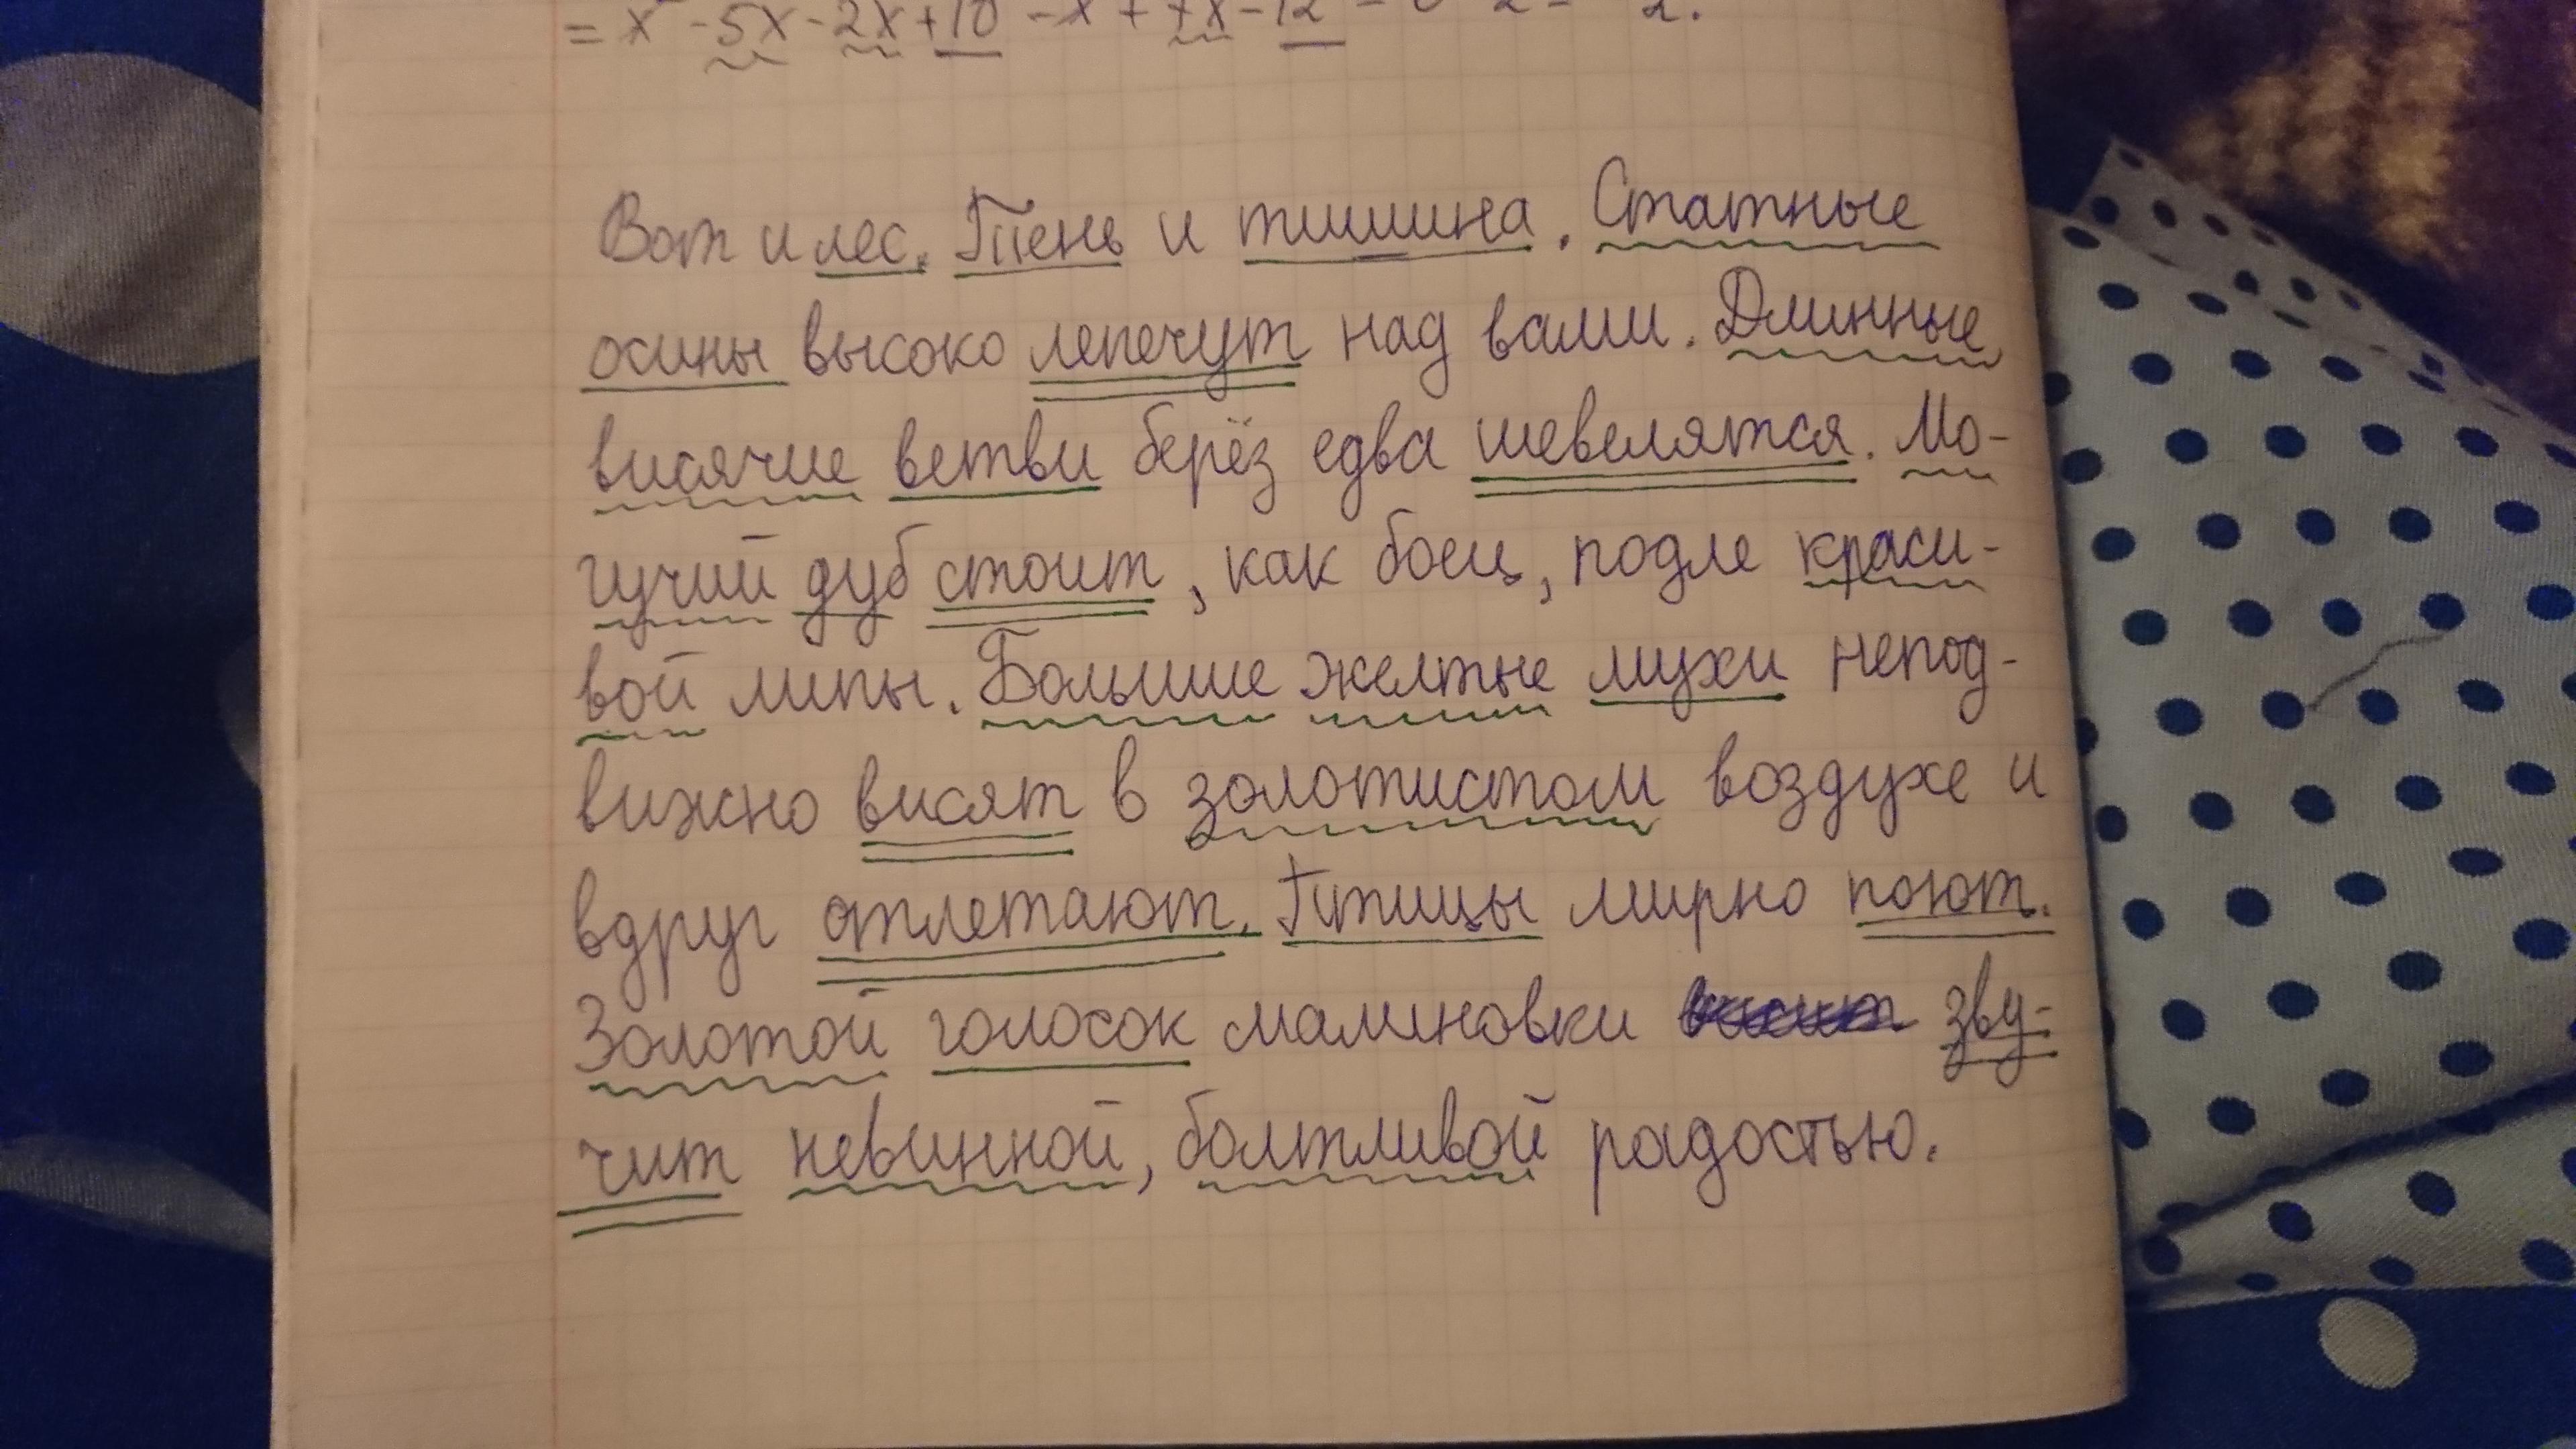 -5x-2x+10-x+7x-12
Вот и лес. Тень и тишина. Статные
осины высоко лепечут над вами. Длинные
висячие ветви берёз едва шевелятся. Мо-
гучий дуб стоит, как боец, подле краси-
вой липы. Большие желтые мухи непод-
вижно висят в золотистом воздухе и
вдруг отлетают. Птицы мирно поют.
Золотой голосок малиновки зву-
чит невинной, болтливой радостью.